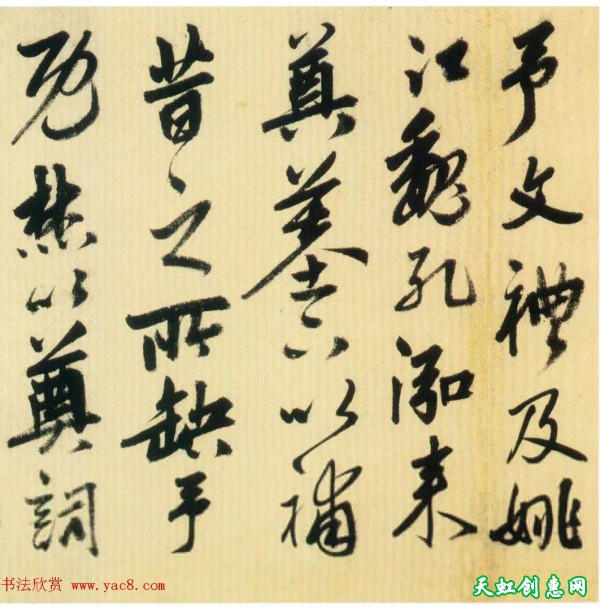 予文禮及姚
江魏孔泓来
奠墓下以補
昔之所缺予
既焚以奠詞
书法欣赏 www.yac8.com
天虹创惠网